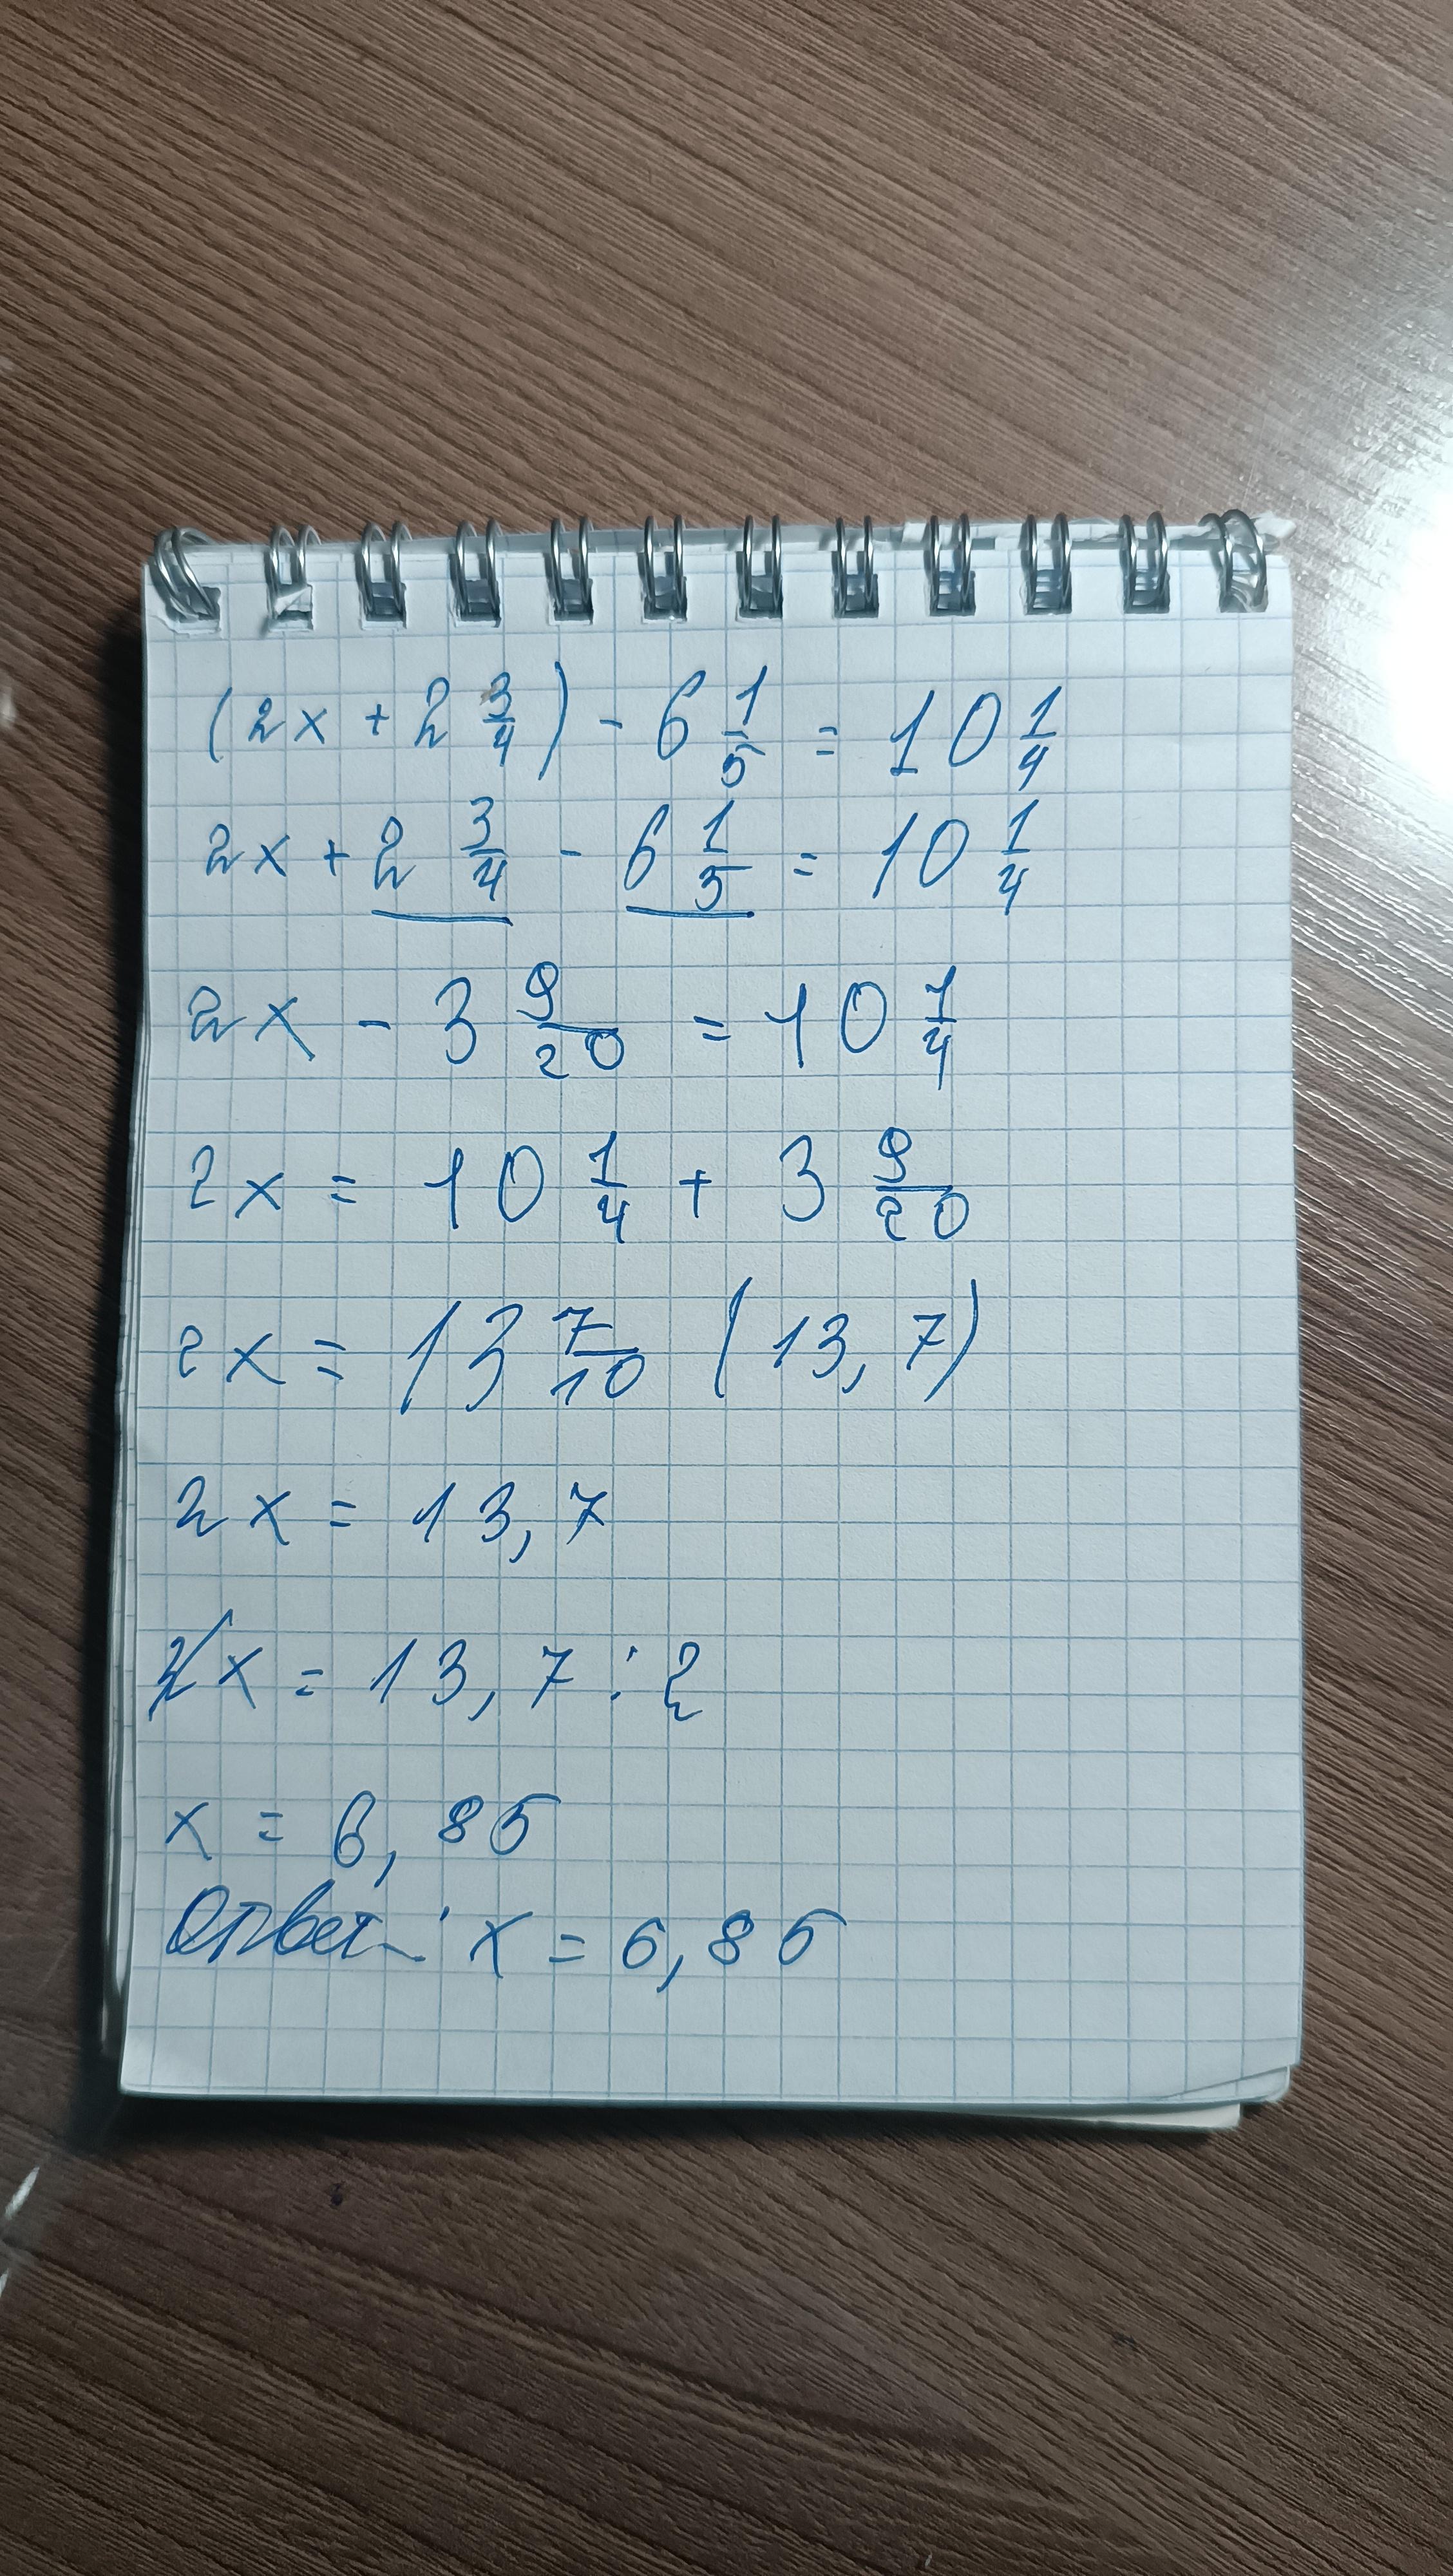 (2x + 2 3/4) - 6 1/5 = 10 1/4
2x + 2 3/4 - 6 1/5 = 10 1/4
2x - 3 9/20 = 10 1/4
2x = 10 1/4 + 3 9/20
2x = 13 7/10 (13,7)
2x = 13,7
2x = 13,7 : 2
x = 6,85
Ответ: x = 6,85